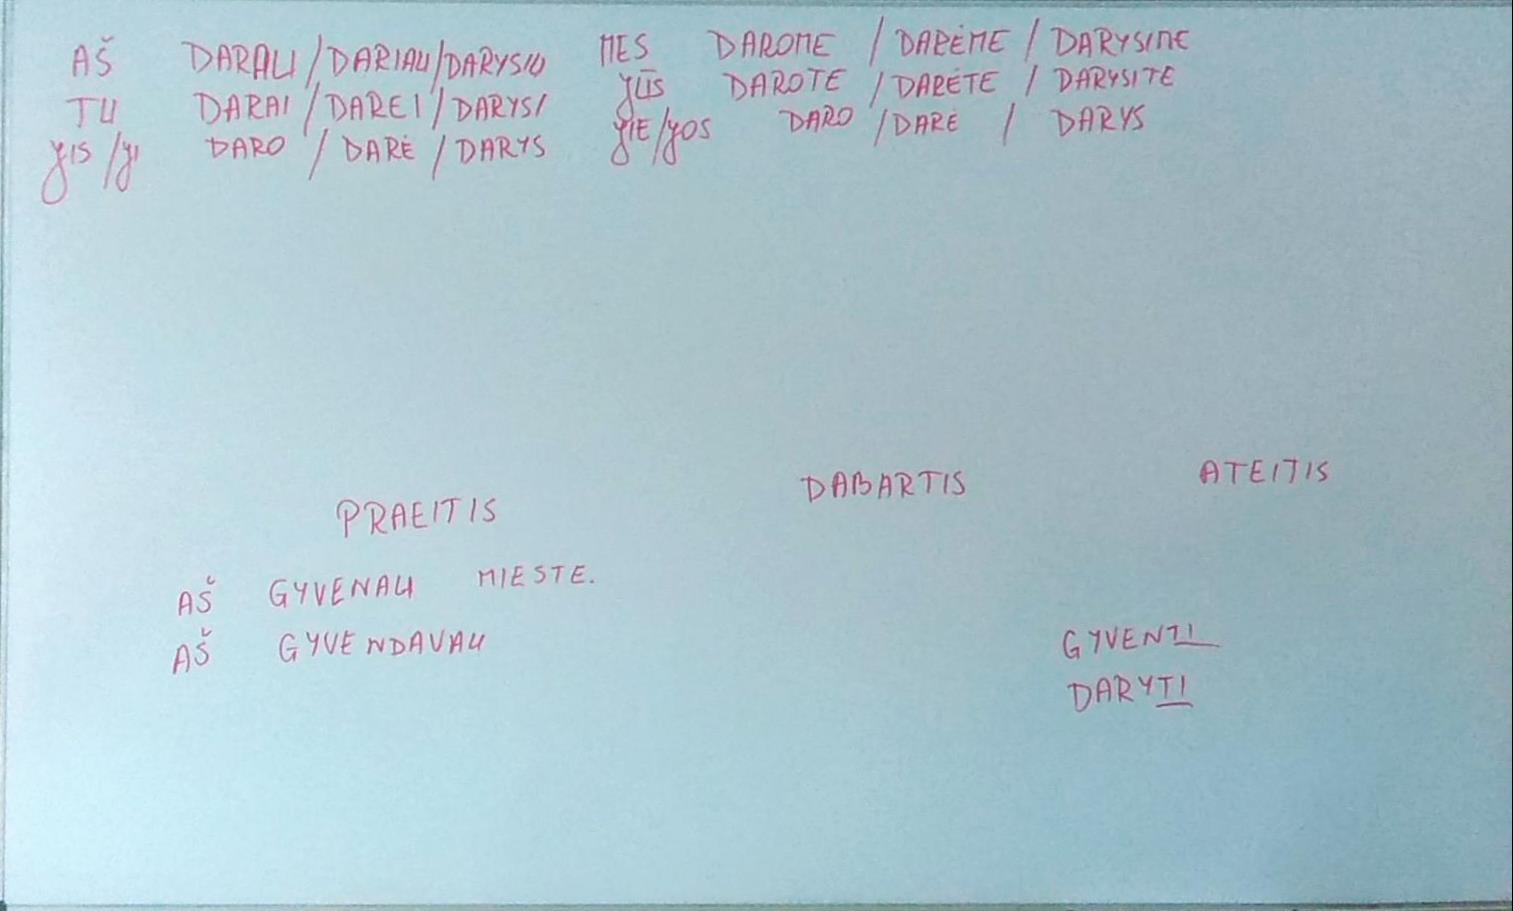 AŠ DARAU / DARIAU / DARYSIU MES DAROME / DARĖME / DARYSIME
TU DARAI / DAREI / DARYSI JŪS DAROTE / DARĖTE / DARYSITE
JIS / JI DARO / DARĖ / DARYS JIE / JOS DARO / DARĖ / DARYS
PRAEITIS DABARTIS ATEITIS
AŠ GYVENAU MIESTE.
AŠ GYVENDAVAU GYVENTI
DARYTI